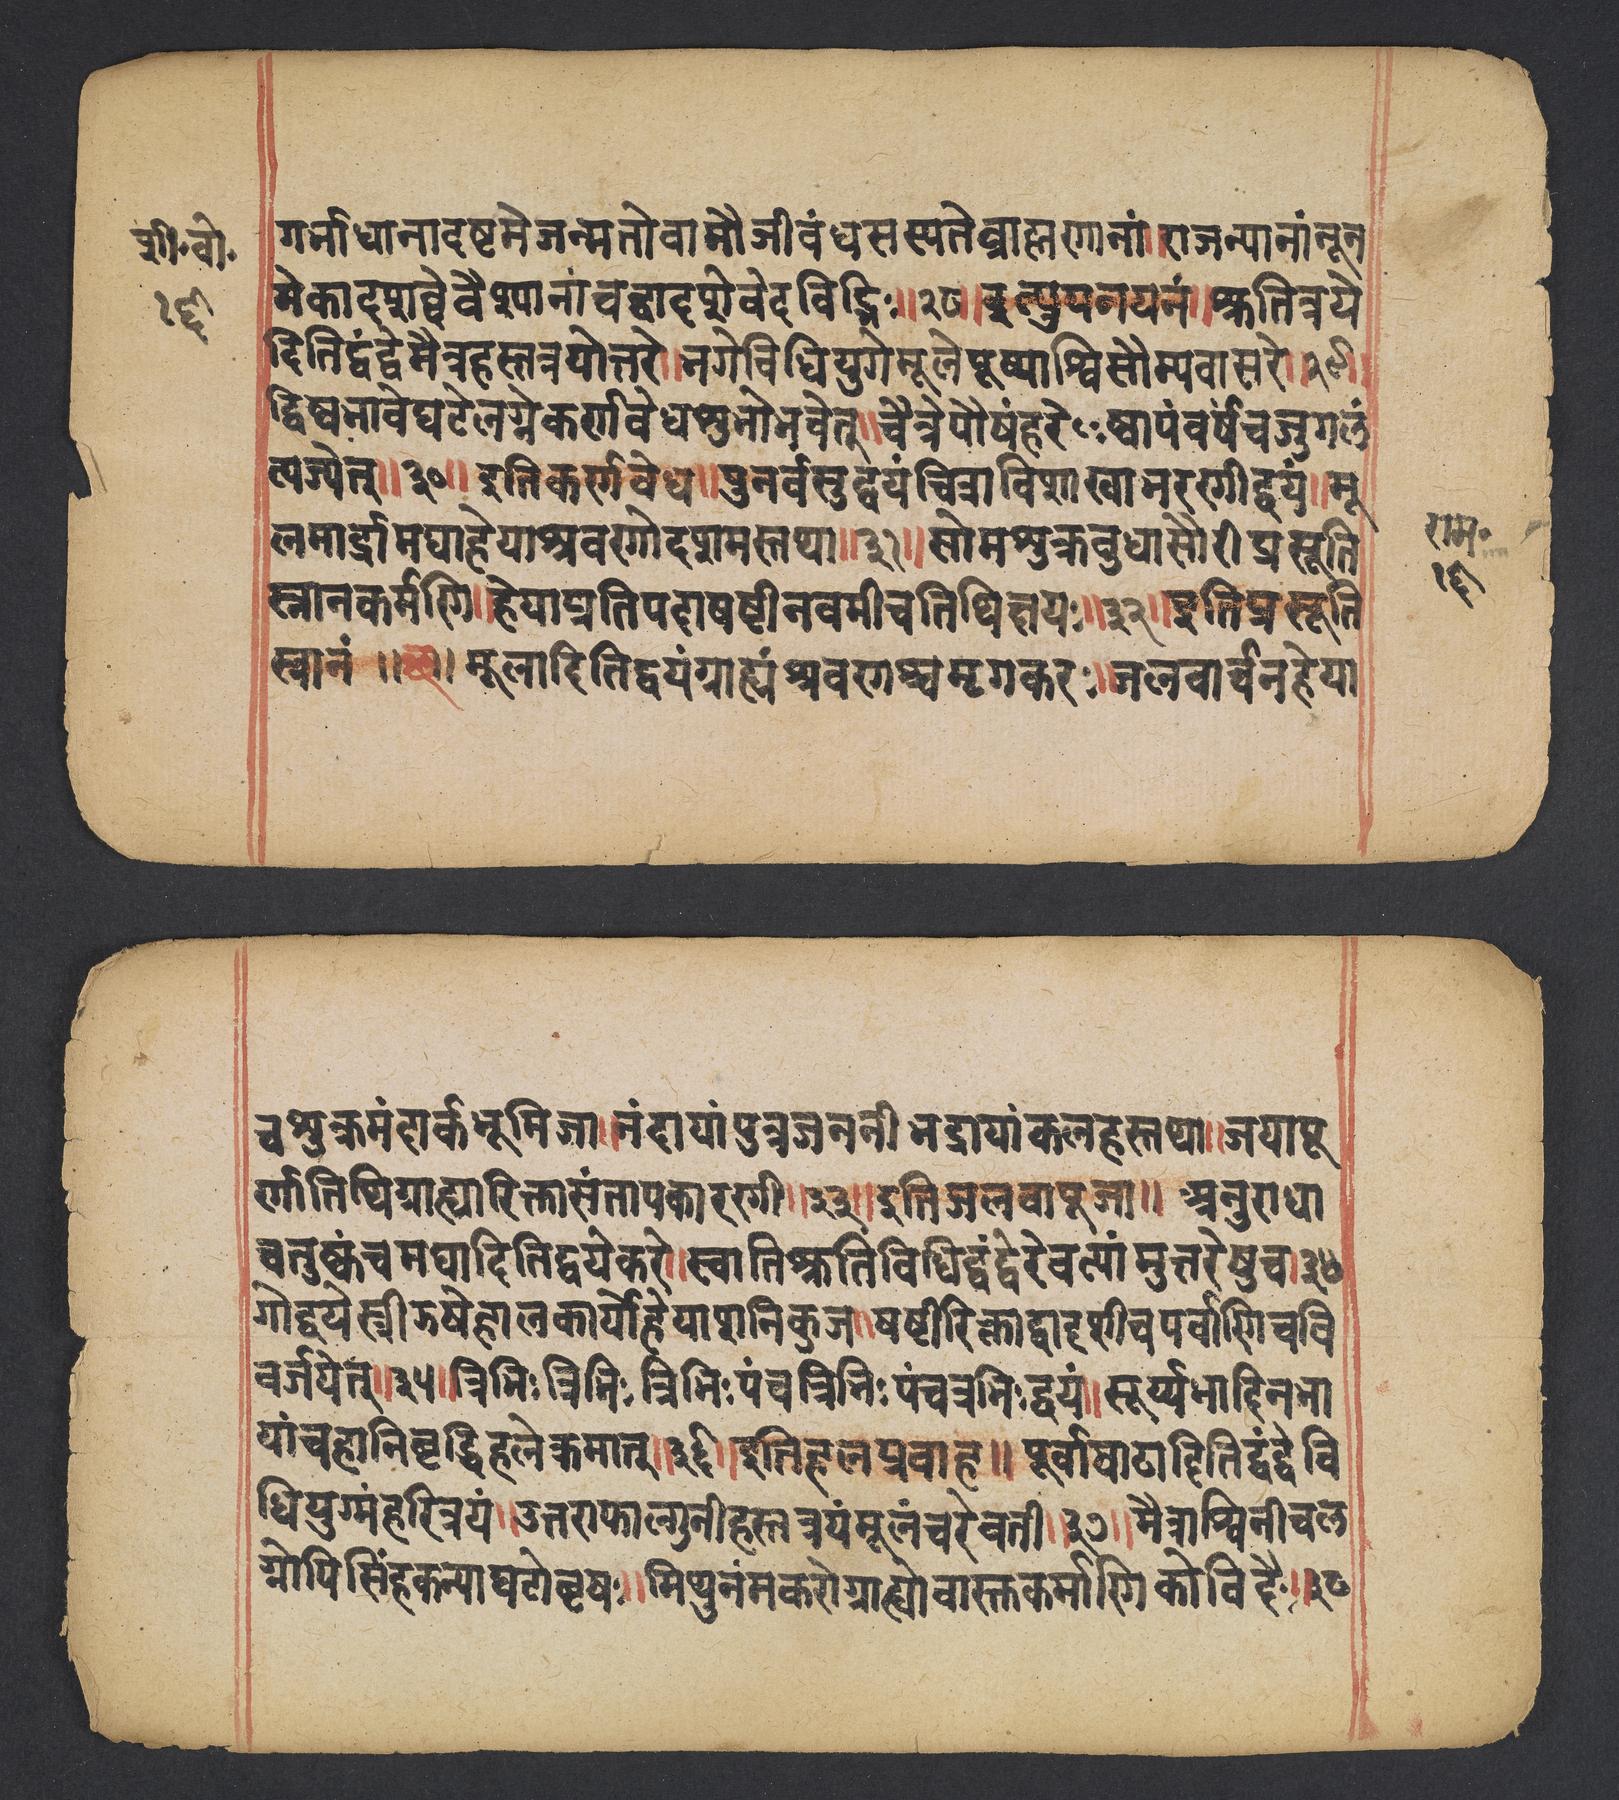 शी॰वो॰
१६
गर्भाधानादष्टमेजन्मतोवामौंजीवंधसस्यतेव्राह्मणानां॥राजन्यानांनून
मेकादशाव्वेवैश्यानांचद्वादशेवेदविद्भिः॥२८॥इत्युपनयनं॥श्रुतित्रये
दितिद्वंद्वेमैत्रहस्तत्रयोत्तरे॥नगेविधियुगेमूलेपूष्याश्विसौम्यवासरे॥२९॥
द्विष्वभावेघटेलग्नेकर्णवेधशुभोभवेत्॥चैत्रेपौषंहरेःष्वापंवर्षंचजुगलं
त्यज्येत्॥३०॥इतिकर्णवेध॥पुनर्वसुद्वयंचित्राविशाखाभरणीद्वयं॥मू
लमार्द्रामघाहेयाश्रवणोदशमस्तथा॥३१॥सोमशुक्रवुधासौरीप्रसूति
स्नानकर्मणि॥हेयाप्रतिपदाषष्टीनवमीचतिथिक्षयः॥३२॥इतिप्रसूति
स्नानं॥छ॥मूलादितिद्वयंग्राह्यंश्रवणश्चमृगकरः॥जलवार्च्चनहेया
राम॰
१६
चशुक्रमंदार्कभूमिजा॥नंदायांपुत्रजननीभद्रायांकलहस्तथा॥जयापू
र्णातिथिग्राह्यारिक्तासंतापकारणी॥३३॥इतिजलवापूजा॥अनुराधा
चतुष्कंचमघादितिद्वयेकरे॥स्वातिश्रुतिविधिद्वंद्वेरेवत्यांमुत्तरेषुच॥३४
गोद्वयेस्त्रीझषेहालकार्योहेयाशनिकुज॥षष्टीरिक्ताद्वादशीचपर्वाणिचवि
वर्जयेत्॥३५॥त्रिभिःत्रिभिःत्रिभिःपंचत्रिभिःपंचत्रभिःद्वयं॥सूर्य्यभादिनभा
यांचहानिवृद्धिहलेक्रमात्॥३६॥इतिहलप्रवाह॥पूर्वाषाढादितिद्वंद्वेवि
धियुग्मंहरित्रयं॥उत्तराफाल्गुनीहस्तत्रयंमूलंचरेवती॥३७॥मैत्राश्विनीचल
ग्नोपिसिंहकन्याघटोवृषः॥मिथुनंमकरोग्राह्योवास्तकर्माणिकोविदैः॥३८